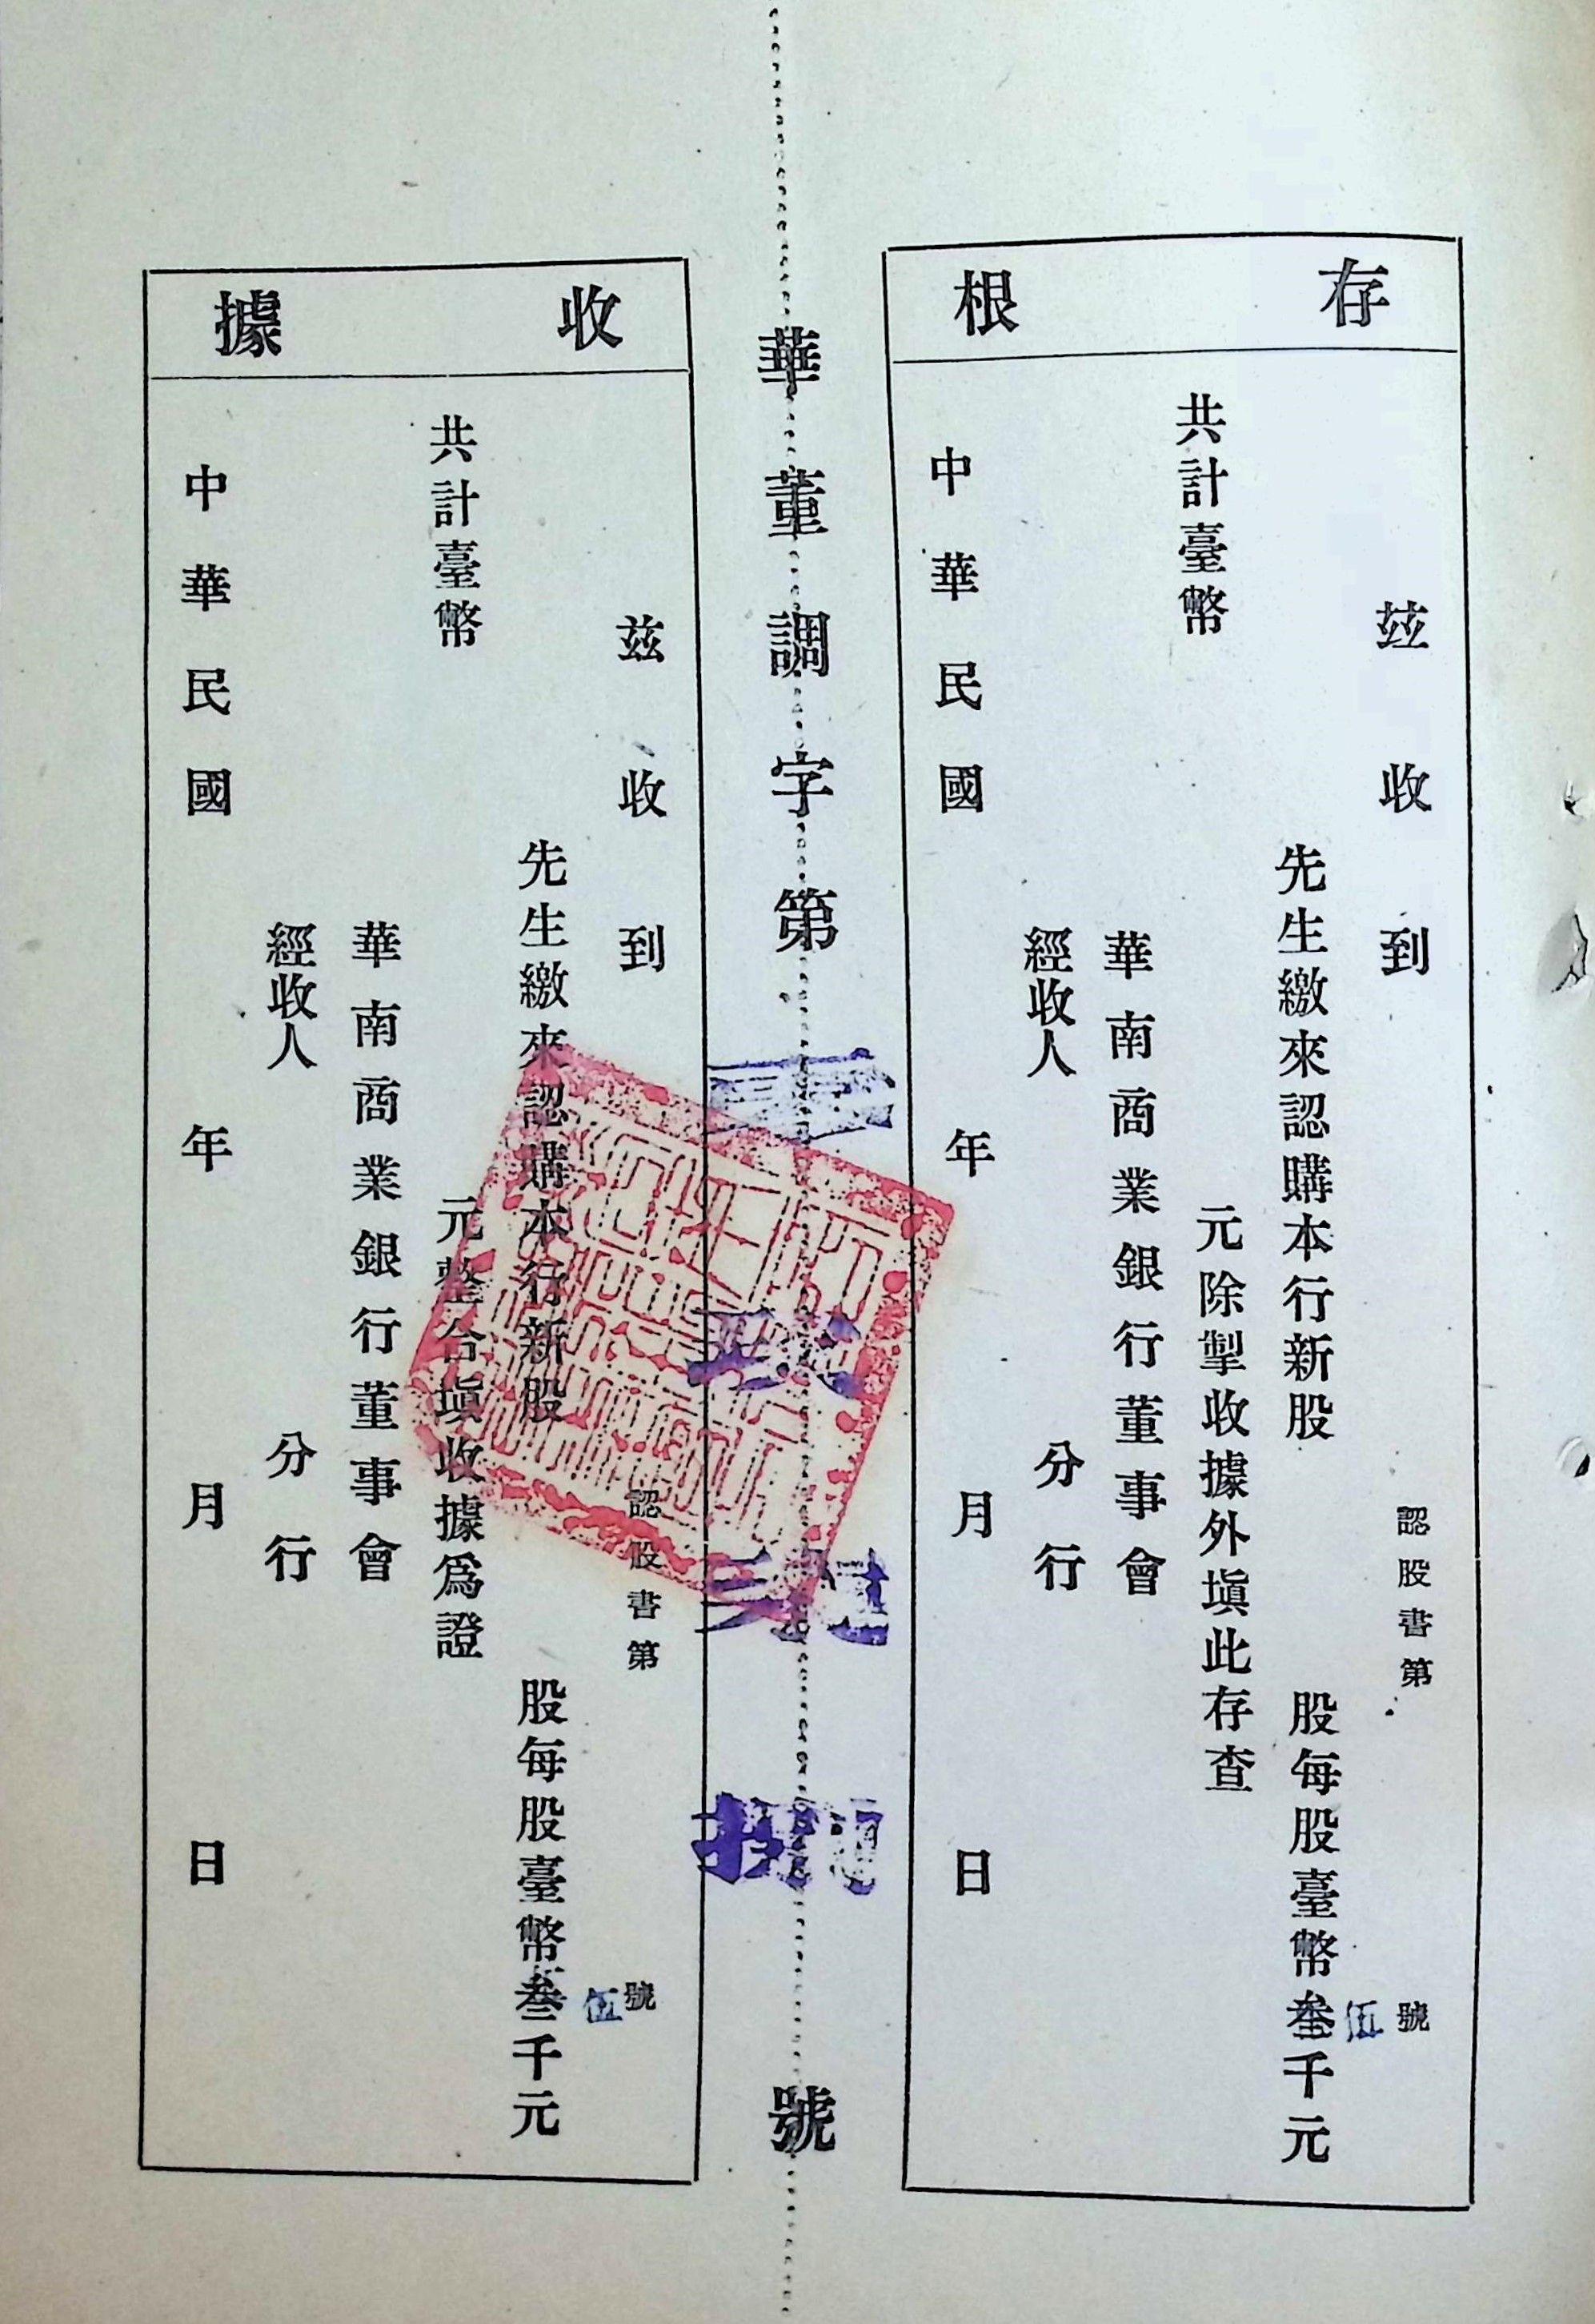 存根
茲收到
認股書第 號
先生繳來認購本行新股 股每股臺幣叁千元
伍
共計臺幣 元除掣收據外塡此存查
華南商業銀行董事會
經收人 分行
中華民國 年 月 日
華董調字第 號
收據
茲收到
認股書第 號
先生繳來認購本行新股 股每股臺幣叁千元
伍
共計臺幣 元整合塡收據爲證
華南商業銀行董事會
經收人 分行
中華民國 年 月 日